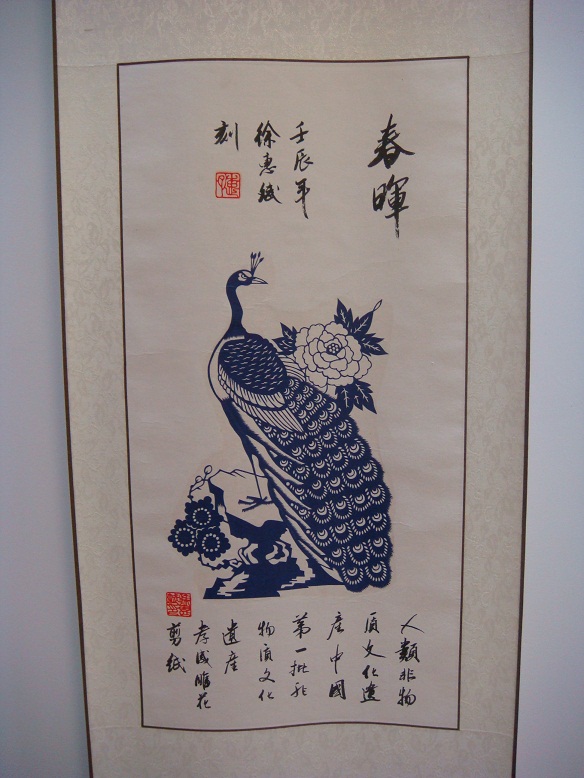 春暉
壬辰年
徐惠纸
刻
人類非物
质文化遗
產中國
第一批非
物质文化
遗産
孝感雕花
剪纸